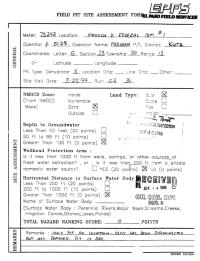 FIELD PIT SITE ASSESSMENT FORM
EL PASO FIELD SERVICES
GENERAL
Meter: 75242 Location:
Operator #: 0128 Operator Name: P/L District: KUTZ
Coordinates: Letter: G Section 23 Township: Range: 13
Or Latitude Longitude
Pit Type: Dehydrator X Location Drip: Line Drip: Other:
Site Visit Date: Run:
SITE ASSESSMENT
NMOCD Zone: Inside Land Type:
(From NMOCD Vulnerable State
Maps) Zone Fee
Outside Indian
Depth to Groundwater
Less Than 50 Feet (20 points)
50 Ft to 99 Ft (10 points)
Greater Than 100 Ft (0 points)
Wellhead Protection Area :
Is it less than 1000 ft from wells, springs, or other sources of
fresh water extraction? , or is it less than 200 ft from a private
domestic water source? YES (20 points) NO (0 points)
Horizontal Distance to Surface Water Body
Less Than 200 Ft (20 points)
200 Ft to 1000 Ft (10 points)
Greater Than 1000 Ft (0 points)
Name of Surface Water Body
(Surface Water Body : Perennial Rivers,Major Wash,Streams,Creeks,
Irrigation Canals,Ditches,Lakes,Ponds)
RECEIVED
OIL CON. DIV.
DIST. 3
TOTAL HAZARD RANKING SCORE: 0 POINTS
REMARKS
Remarks :